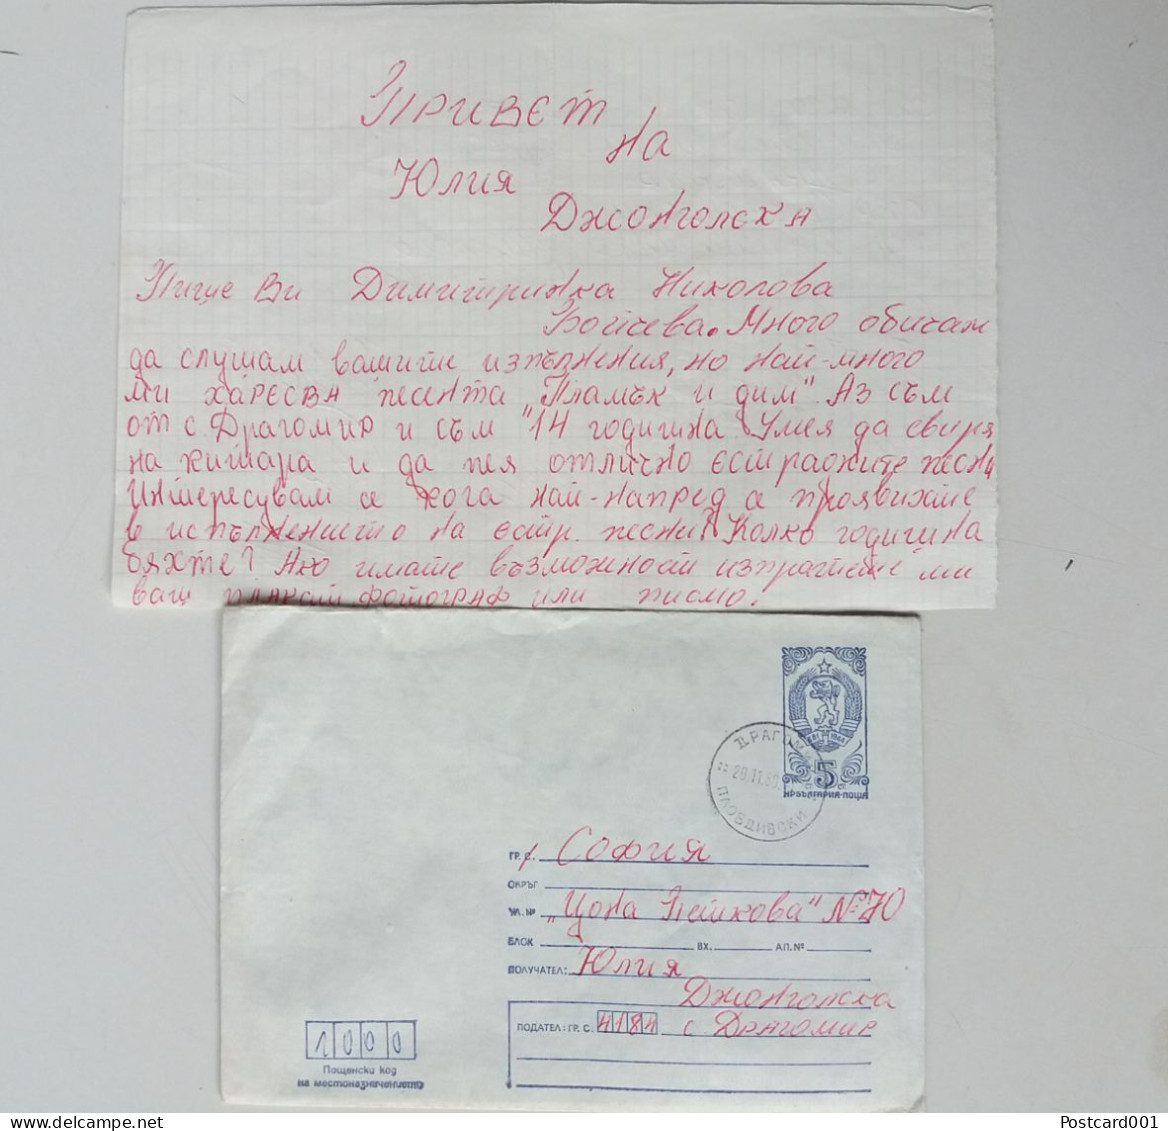 Привет
на
Юлия
Джонголска
Пише Ви Димитринка Николова
Бойчева. Много обичам
да слушам вашите изпълнения, но най-много
ми харесва песента "Пламък и дим". Аз съм
от с. Драгомир и съм 14 годишна. Умея да свиря
на китара и да пея отлично естрадните песни
Интересувам се кога най-напред се проявихте
в испълнението на естр. песни? Колко годишна
бяхте? Ако имате възможност изпратете ми
ваш фотограф или писмо.
НР БЪЛГАРИЯ·ПОЩА
5
ст ст
ДРАГОМИР
ПЛОВДИВСКИ
ГР. С. София
ОКРЪГ
УЛ. № „Цона Пейкова" № 70
БЛОК ВХ. АП. №
ПОЛУЧАТЕЛ: Юлия
Джонголска
ПОДАТЕЛ: ГР. С. 4184 с. Драгомир
1000
Пощенски код
на местоназначението
Postcard001